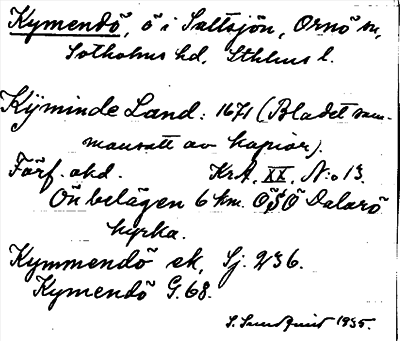 Kymendö, ö i Saltsjön, Ornö sn,
Sotholms hd, Sthlms l.
Kÿminde Land: 1671 (Bladet sam-
mansatt av kopior).
Förf. okd. KrA, XX, N:o 13.
Ön belägen 6 km. OSO Dalarö
kyrka.
Kymmendö ek, Sj. 236.
Kymendö G. 68.
S. Sundquist 1935.